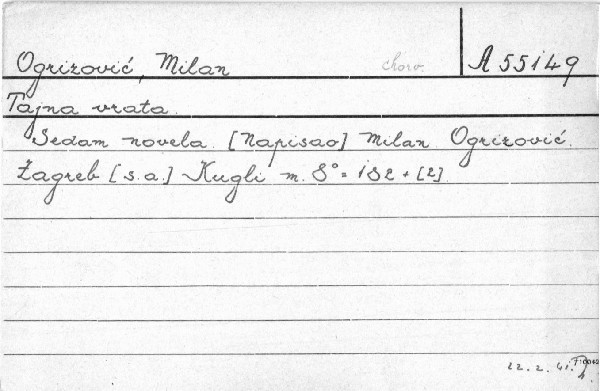 Ogrizović, Milan chorv. A 55149
Tajna vrata.
Sedam novela. [Napisao] Milan Ogrizović.
Zagreb [s.a.] Kugli m. 8° = 182 + [2]
22. 2. 41.